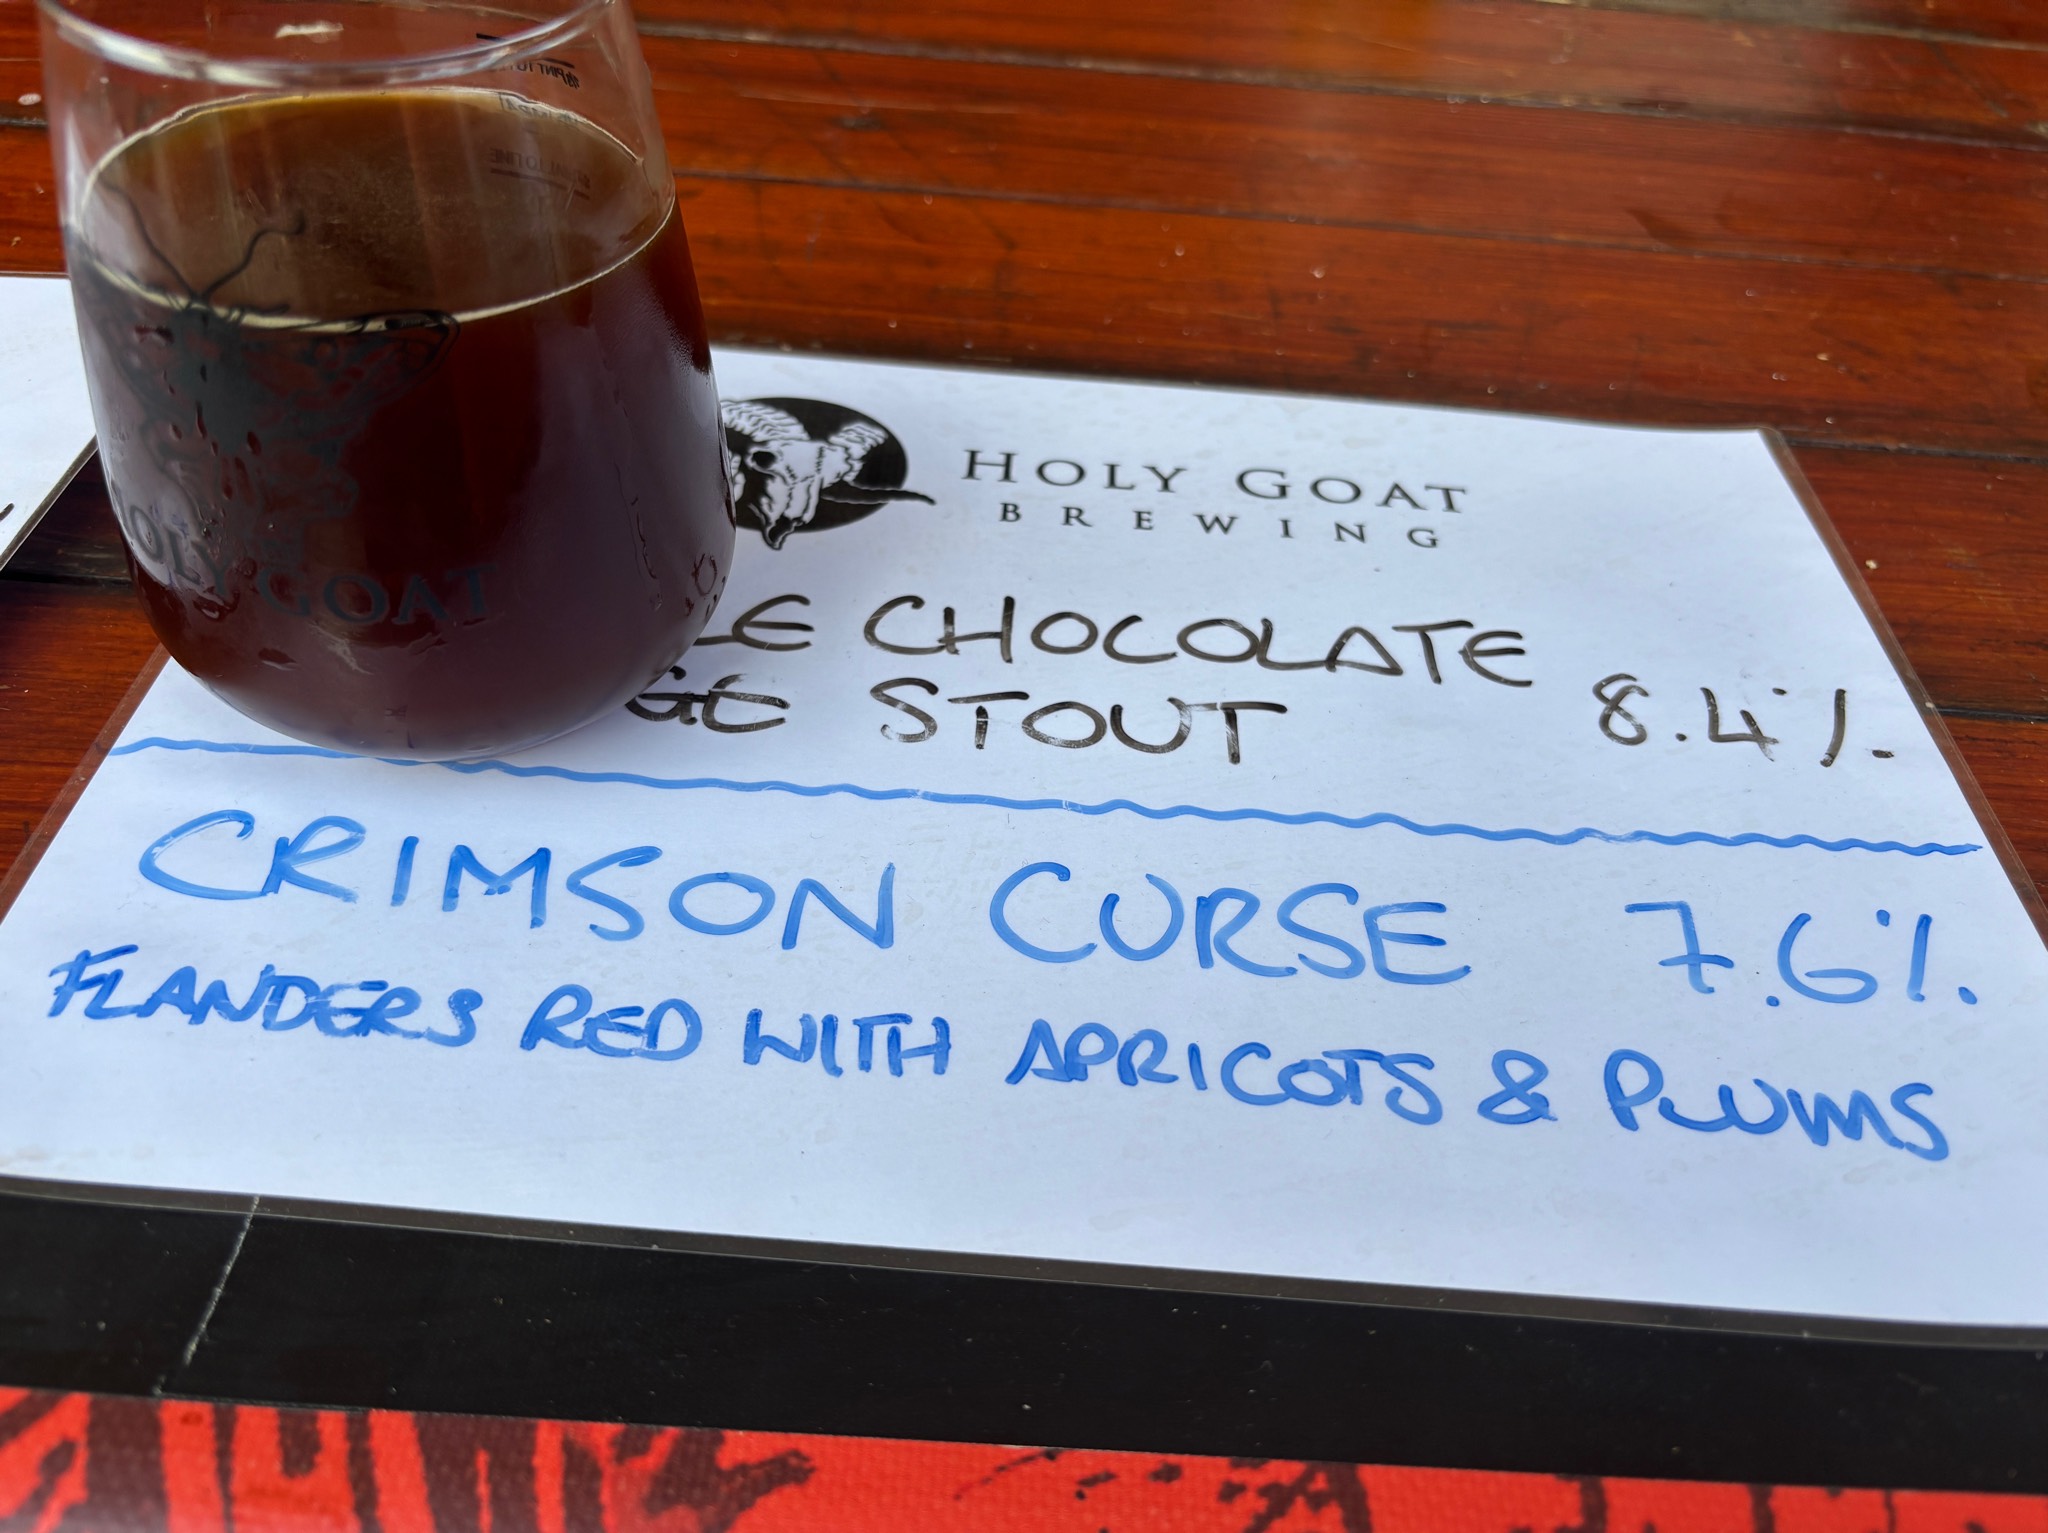 HOLY GOAT
HOLY GOAT
BREWING
CHOCOLATE
STOUT 8.4%
CRIMSON CURSE 7.6%
FLANDERS RED WITH APRICOTS & PLUMS